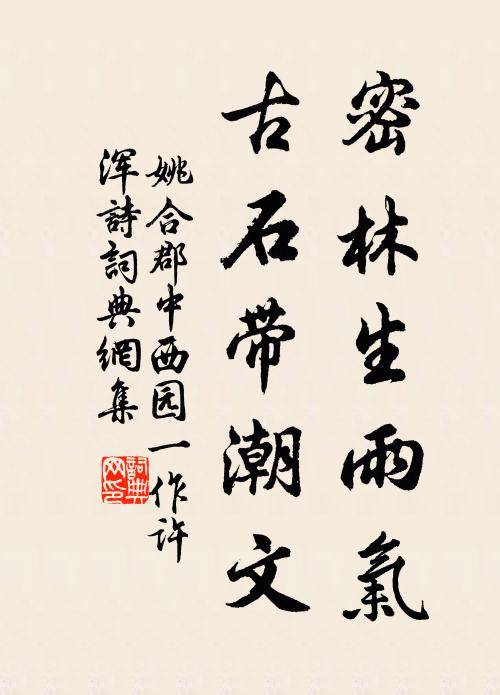 密林生雨氣
古石带潮文
姚合郡中西园一作许
浑詩詞典網集
詞典
网印